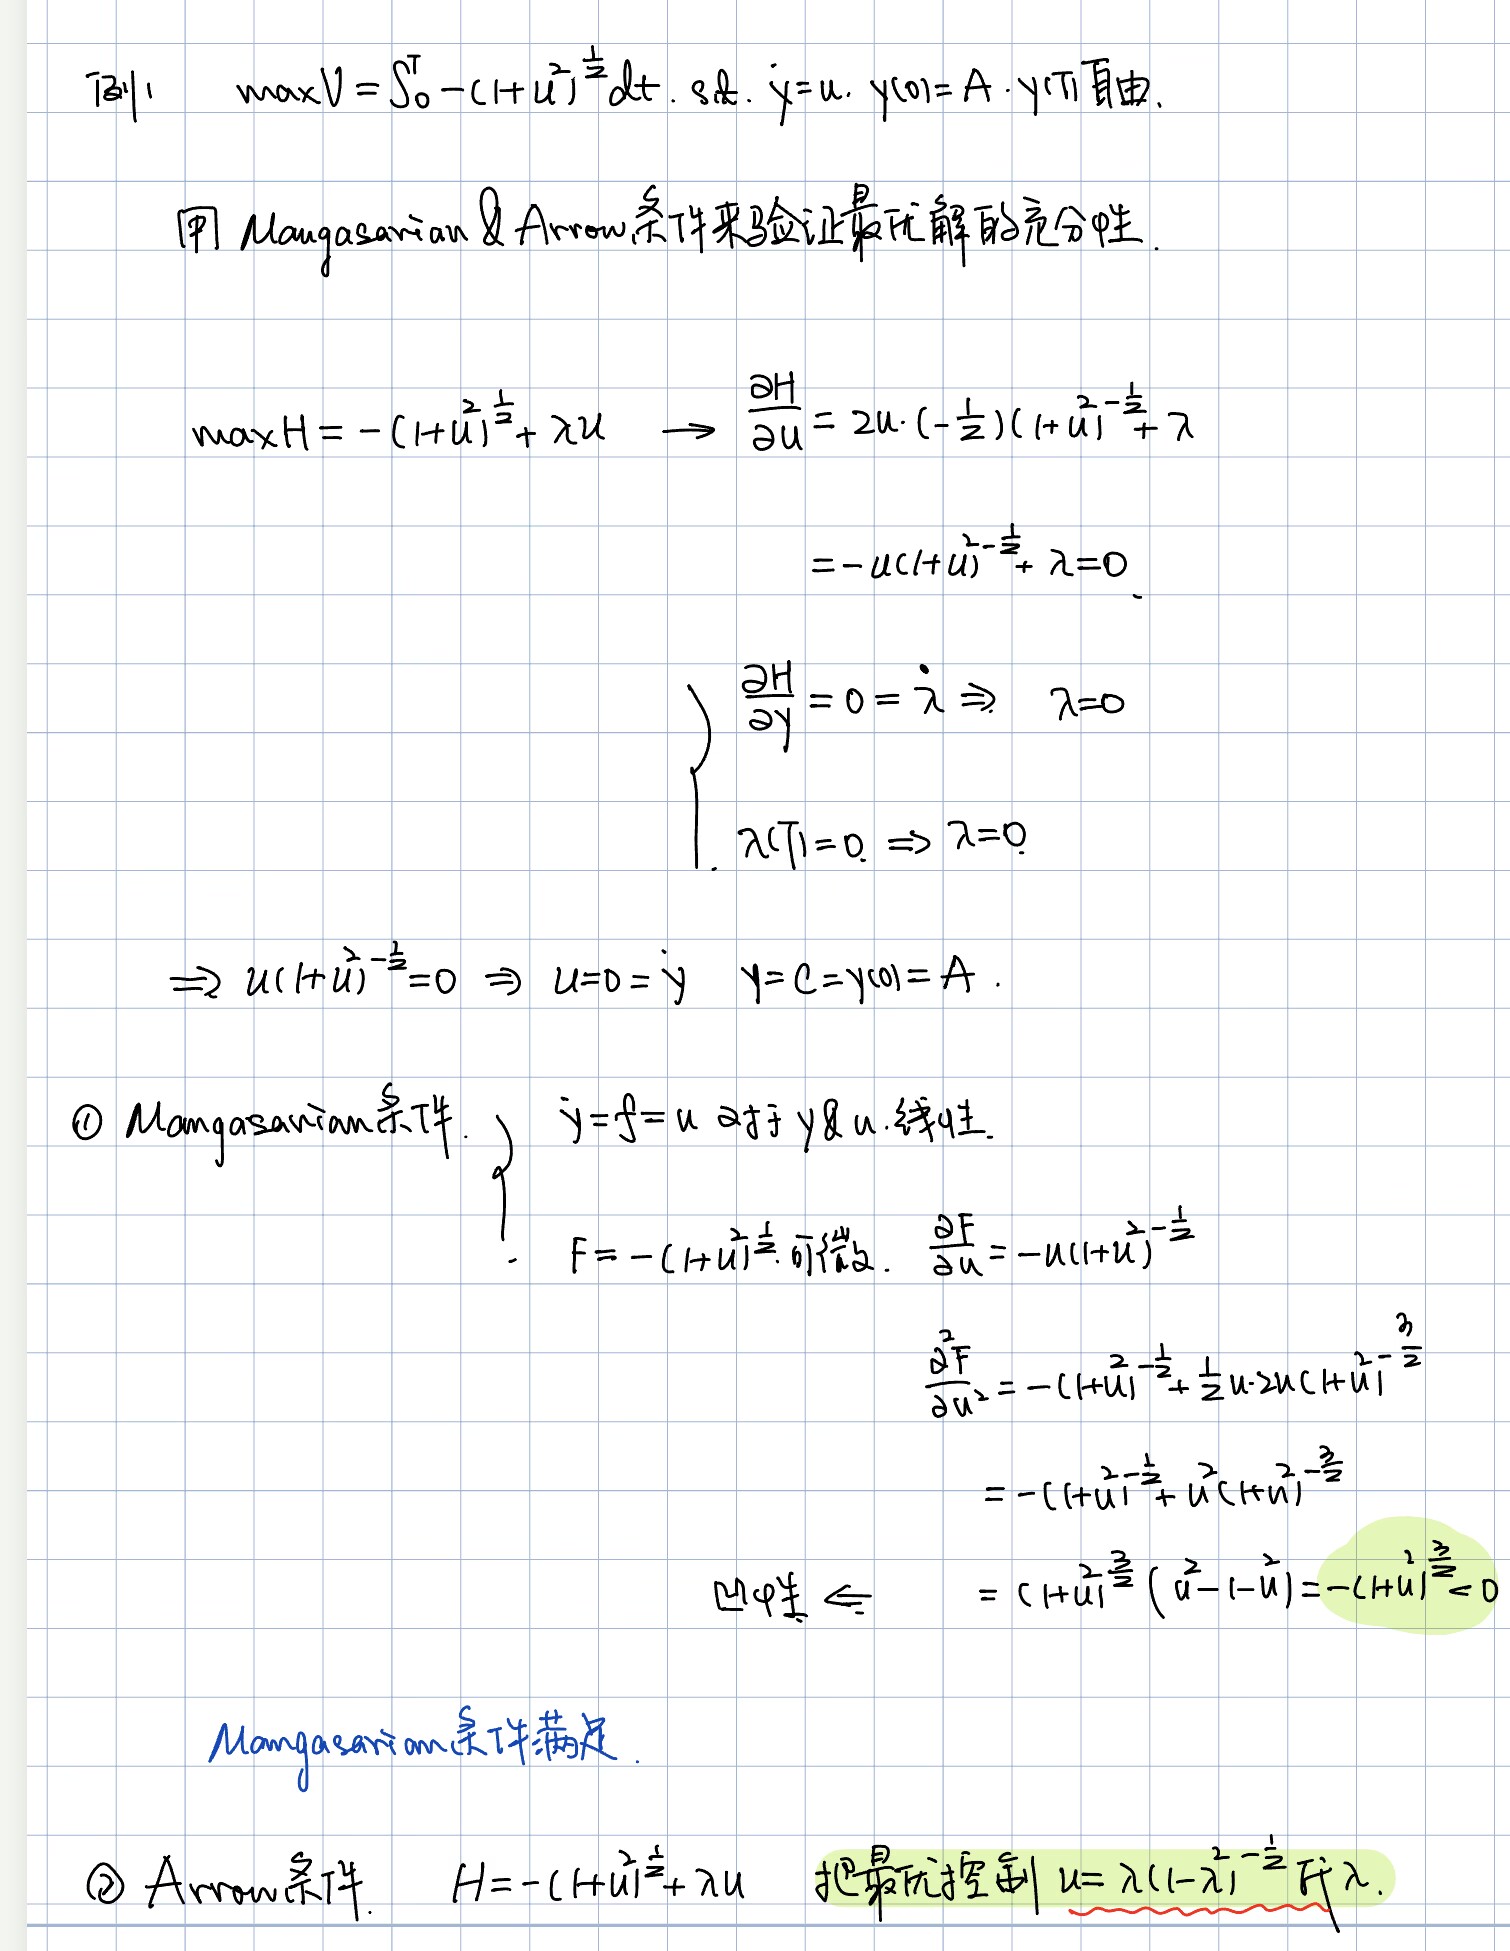 例1 max V = ∫₀ᵀ -(1+u²)^{1/2} dt. s.t. ẏ=u. y(0)=A. y(T)自由.
用 Mangasarian & Arrow条件来验证最优解的充分性.
max H = -(1+u²)^{1/2} + λu → ∂H/∂u = 2u·(-1/2)(1+u²)^{-1/2} + λ
= -u(1+u²)^{-1/2} + λ = 0.
∂H/∂y = 0 = λ̇ ⇒ λ=0
λ(T)=0. ⇒ λ=0.
⇒ u(1+u²)^{-1/2}=0 ⇒ u=0=ẏ y=C=y(0)=A.
① Mangasarian条件. ẏ=f=u 对于y&u.线性.
F=-(1+u²)^{1/2}.可微. ∂F/∂u = -u(1+u²)^{-1/2}
∂²F/∂u² = -(1+u²)^{-1/2} + 1/2 u·2u(1+u²)^{-3/2}
= -(1+u²)^{-1/2} + u²(1+u²)^{-3/2}
凹性 ⇐ = (1+u²)^{3/2} (u²-1-u²) = -(1+u²)^{3/2} < 0
Mangasarian条件满足.
② Arrow条件. H=-(1+u²)^{1/2}+λu 把最优控制 u=λ(1-λ²)^{-1/2} 代入.